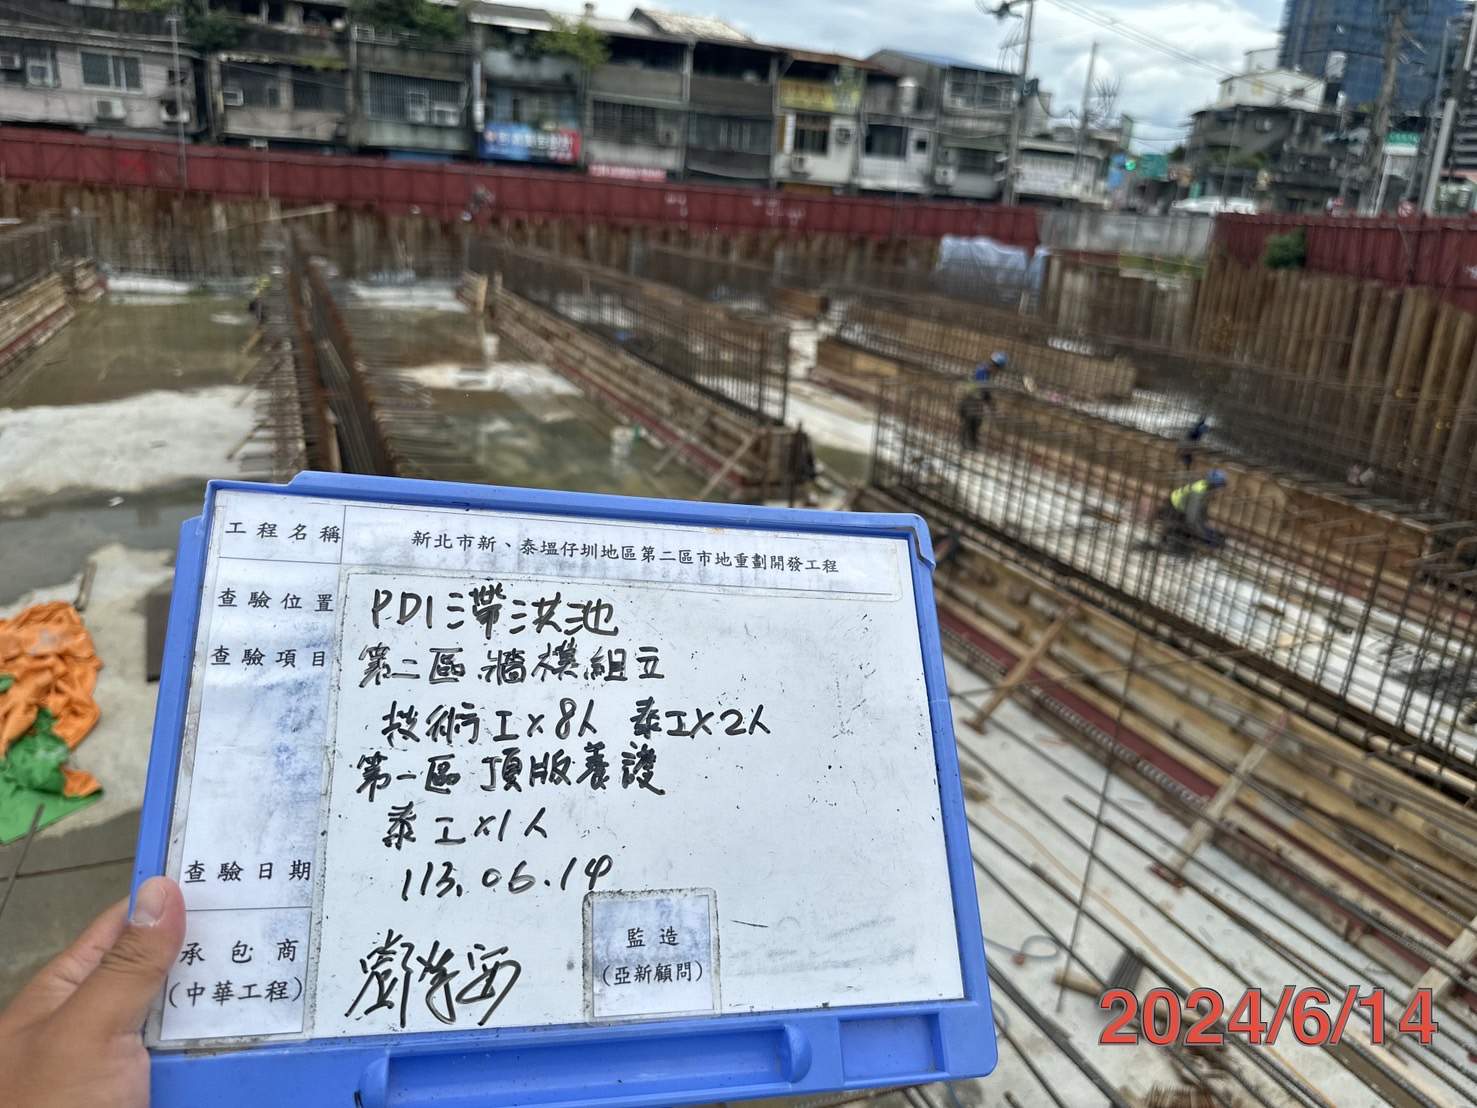 工程名稱 新北市新、泰塭仔圳地區第二區市地重劃開發工程
查驗位置 PD1滯洪池
查驗項目 第二區牆模組立
技術工x8人 泰工x2人
第一區頂版養護
泰工x1人
查驗日期 113.06.14
承包商
(中華工程)
監造
(亞新顧問)
2024/6/14